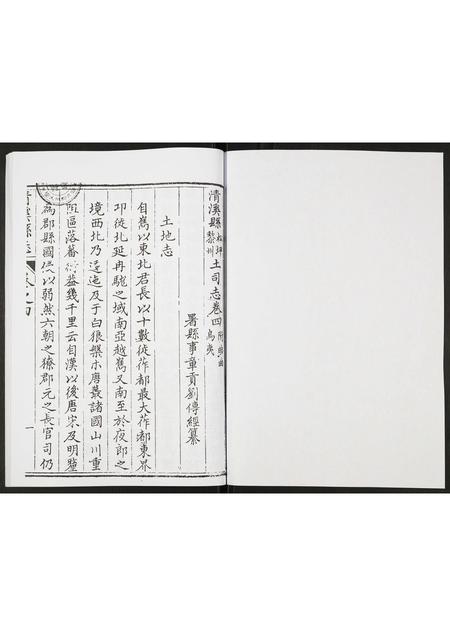 清溪縣松坪黎州土司志卷四附㑩曲烏夷
署縣事章貢劉傳經纂
土地志
自巂以東北君長以十數徙莋都最大莋都東界
邛徙北延冉駹之域南亞越巂又南至於夜郎之
境西北乃逶迤及于白狼槃木唐菆諸國山川重
阻區落蕃衍蓋幾千里云自漢以後唐宋及明鑒
為郡縣國侵以弱然六朝之獠郡元之長官司仍
清溪縣志 卷之四 一